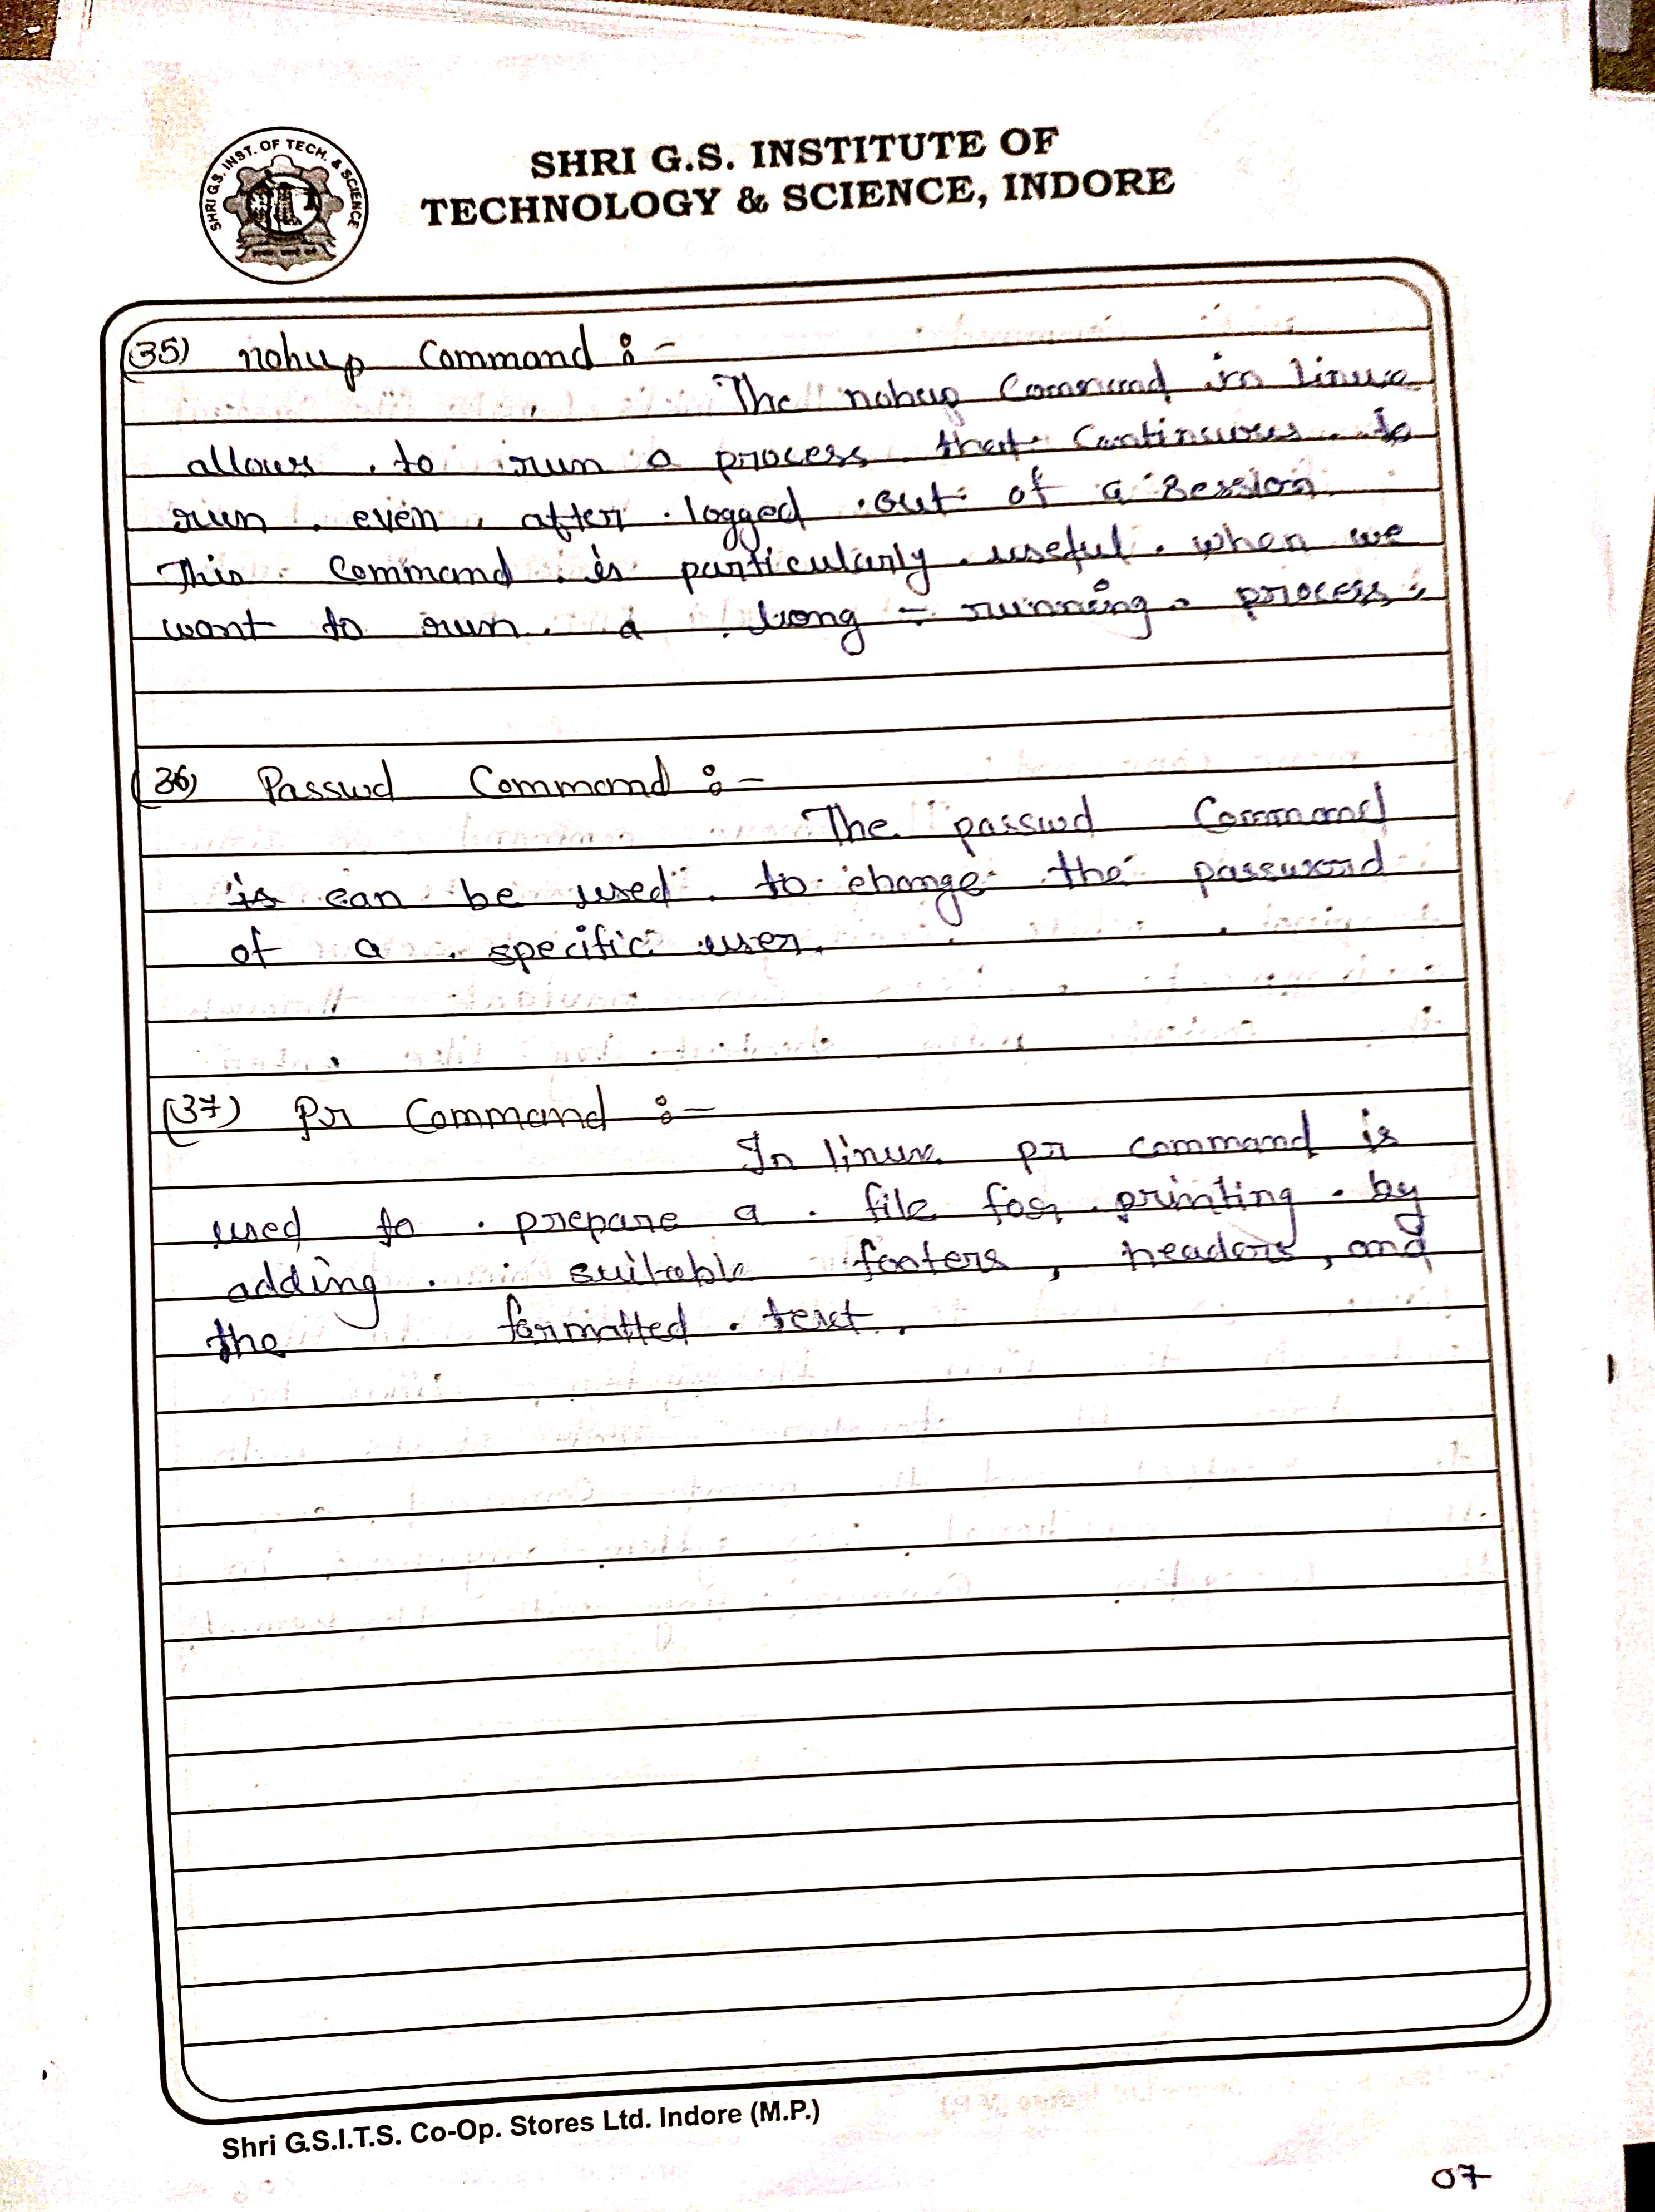 SHRI G.S. INST. OF TECH. & SCIENCE
SHRI G.S. INSTITUTE OF
TECHNOLOGY & SCIENCE, INDORE
(35) nohup Command :-
The nohup Command in linux
allows to run a process that Continuous to
run even after logged out of a session.
This Command is particularly useful when we
want to run a long - running process.
(36) Passwd Command :-
The passwd Command
is can be used to change the password
of a specific user.
(37) Pr Command :-
In linux pr command is
used to prepare a file for printing by
adding suitable footers, headers, and
the formatted text.
Shri G.S.I.T.S. Co-Op. Stores Ltd. Indore (M.P.)
07